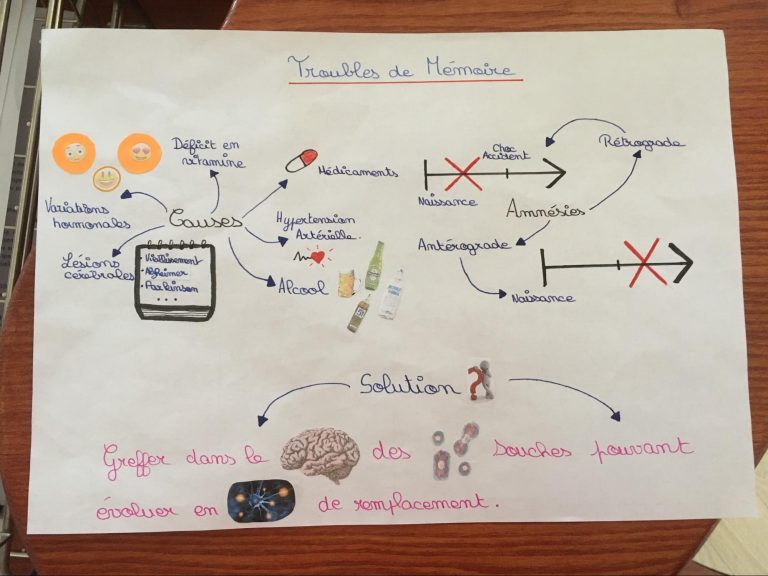 Troubles de Mémoire
Déficit en
vitamine
Médicaments
Variations
hormonales
Causes
Hypertension
Artérielle.
Lésions
cérébrales
Vieillissement
Alzheimer
Parkinson
...
Alcool
Choc
Accident
Rétrograde
Naissance
Amnésies
Antérograde
Naissance
Solution
Greffer dans le des souches pouvant
évoluer en de remplacement.